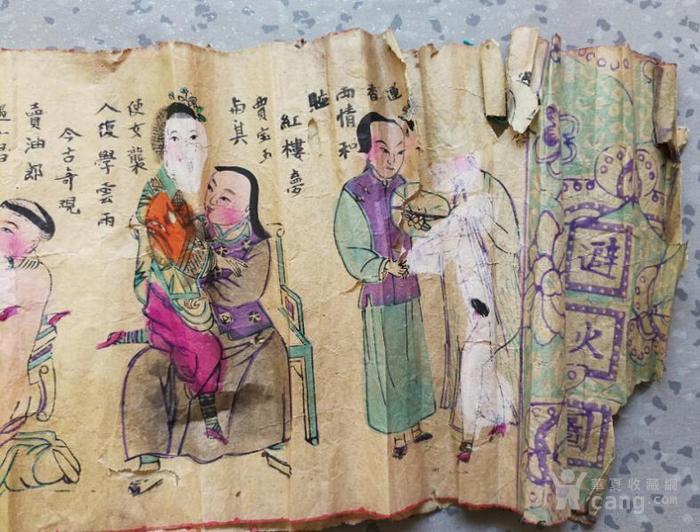 避火图
蓮香
兩情和
睦
紅樓夢
賈宝玉
與其
使女襲
人復學雲雨
今古奇觀
賣油郎
華夏收藏網
cang.com